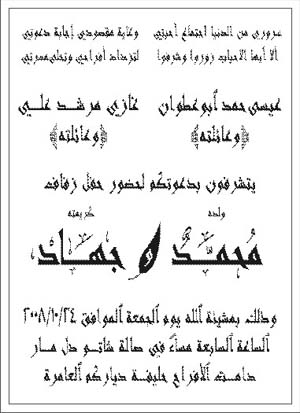 سروري من الدنيا اجتماع أحبتي وغاية مقصودي إجابة دعوتي
ألا أيها الأحباب زوروا وشرفوا لتزداد أفراحي وتحلى مسرتي
عيسى حمد أبو عطوان غازي مرشد علي
﴿وعائلته﴾ ﴿وعائلته﴾
يتشرفون بدعوتكم لحضور حفل زفاف
ولده كريمته
مُحمَّدٌ و جهاد
وذلك بمشيئة الله يوم الجمعة الموافق ٢٠٠٨/١٠/٢٤
الساعة السابعة مساءً في صالة شاتو دل مار
دامت الأفراح حليفة دياركم العامرة